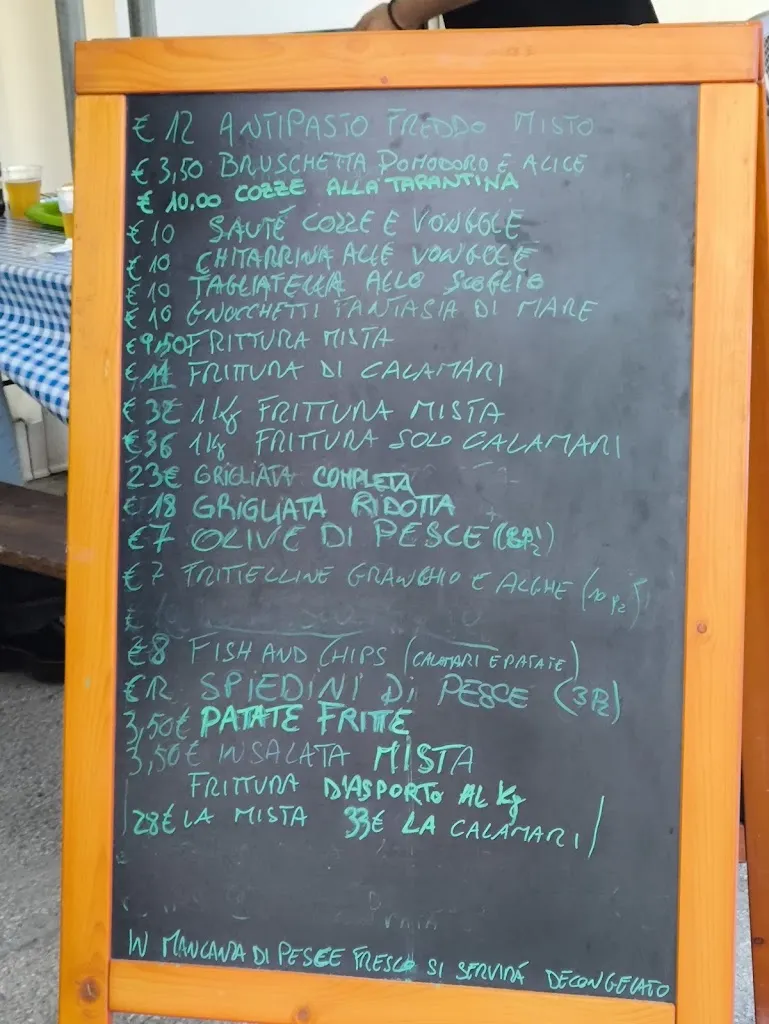 € 12 ANTIPASTO FREDDO MISTO
€ 3,50 BRUSCHETTA POMODORO E ALICE
€ 10,00 COZZE ALLA TARANTINA
€ 10 SAUTÉ COZZE E VONGOLE
€ 10 CHITARRINA ALLE VONGOLE
€ 10 TAGLIATELLA ALLO SCOGLIO
€ 10 GNOCCHETTI FANTASIA DI MARE
€ 9,50 FRITTURA MISTA
€ 11 FRITTURA DI CALAMARI
€ 32 1 Kg FRITTURA MISTA
€ 36 1 Kg FRITTURA SOLO CALAMARI
23€ GRIGLIATA COMPLETA
€ 18 GRIGLIATA RIDOTTA
€7 OLIVE DI PESCE (8Pz)
€ 7 FRITTELLINE GRANCHIO E ALGHE (10 pz)
€
€8 FISH AND CHIPS (CALAMARI E PATATE)
€12 SPIEDINI Di PESCE (3Pz)
3,50€ PATATE FRITTE
3,50€ INSALATA MISTA
FRITTURA D'ASPORTO AL Kg
28€ LA MISTA 33€ LA CALAMARI
IN MANCANZA DI PESCE FRESCO SI SERVIRÁ DECONGELATO